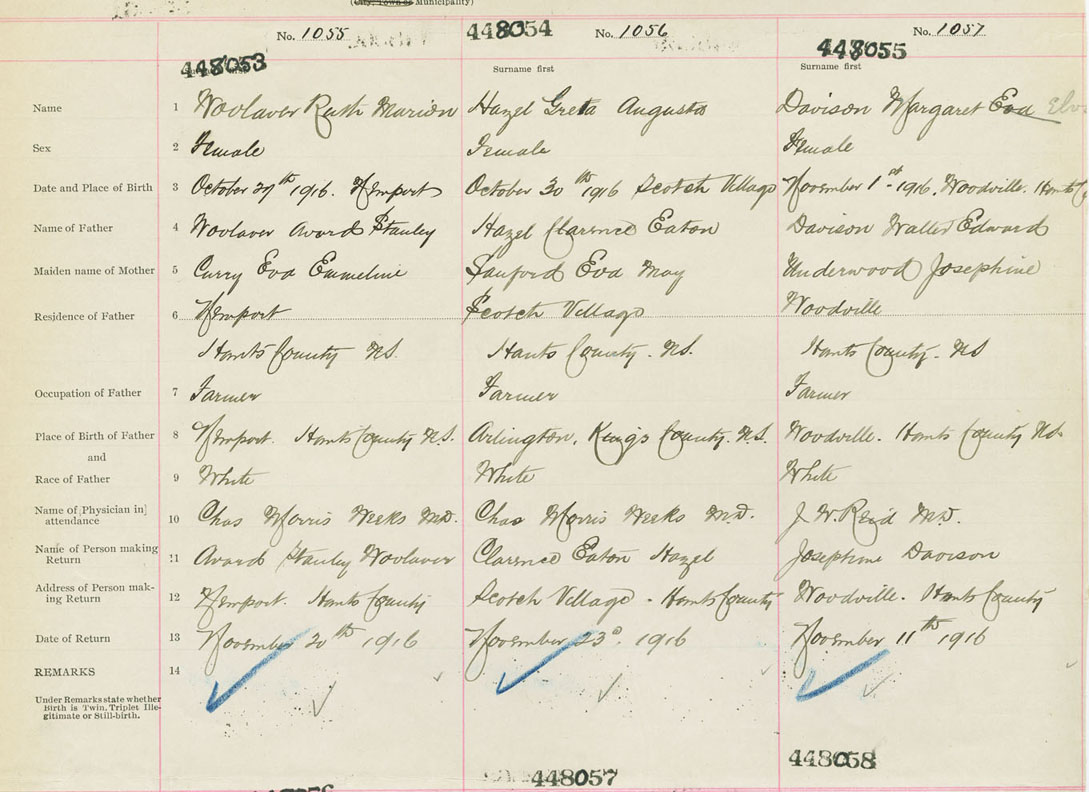 (City, Town or Municipality)
No. 1055
448053
Surname first
448054
No. 1056
Surname first
No. 1057
448055
Surname first
Name 1 Woolaver Ruth Marion Hazel Greta Augusta Davison Margaret Eva
Sex 2 Female Female Female
Date and Place of Birth 3 October 27th 1916. Newport October 30th 1916 Scotch Village November 1st 1916. Woodville. Hants
Name of Father 4 Woolaver Avard Stanley Hazel Clarence Eaton Davison Walter Edward
Maiden name of Mother 5 Curry Eva Emmeline Sanford Eva May Underwood Josephine
Residence of Father 6 Newport Scotch Village Woodville
Hants County NS. Hants County. NS. Hants County. NS
Occupation of Father 7 Farmer Farmer Farmer
Place of Birth of Father 8 Newport. Hants County N.S. Arlington, Kings County. NS. Woodville. Hants County NS.
and
Race of Father 9 White White White
Name of [Physician in]
attendance 10 Chas Morris Weeks MD. Chas Morris Weeks MD. J. W. Reid MD.
Name of Person making
Return 11 Avard Stanley Woolaver Clarence Eaton Hazel Josephine Davison
Address of Person mak-
ing Return 12 Newport. Hants County Scotch Village - Hants County Woodville. Hants County
Date of Return 13 November 20th 1916 November 23d. 1916 November 11th 1916
REMARKS 14
Under Remarks state whether
Birth is Twin, Triplet Ille-
gitimate or Still-birth.
448057
448058